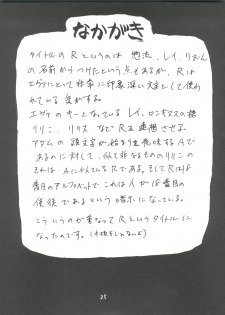 なかがき
タイトルの Rというのは 逃避、レイ、りおん
の名前からつけたという点もあるが、Rは
エヴァにとって非常に印象深い文字として使わ
れている気がする。
エヴァの キーとなっている レイ、ロンギヌスの槍
リリン、リリス など Rを連想させる。
アダムの 頭文字が始まりを意味する Aで
あるのに対して、似て非なるもののリリンの
それは Aに似ている Rである。そして Rは
番目のアルファベットで これは 人が 番目の
使徒である という暗示になっている。
こういうのが重なって Rというタイトルに
なったのです。
25